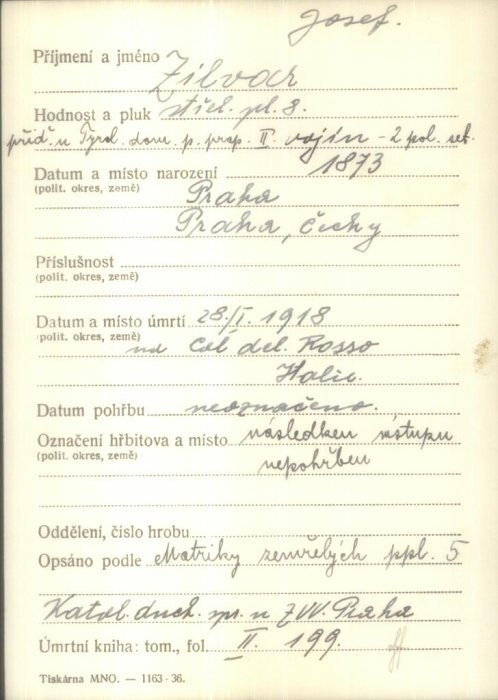 Josef.
Příjmení a jméno Zilvar
Hodnost a pluk střel. pl. 8.
přiď. u Tyrol. dom. p. prap. II. vojín - 2 pol. set.
Datum a místo narození 1873
(polit. okres, země) Praha
Praha, Čechy
Příslušnost
(polit. okres, země)
Datum a místo úmrtí 28./I. 1918
(polit. okres, země) na Col. del. Rosso
Italie.
Datum pohřbu neoznačeno.
Označení hřbitova a místo následkem ústupu
(polit. okres, země) nepohřben
Oddělení, číslo hrobu
Opsáno podle Matriky zemřelých ppl. 5
Katol. duch. spr. u ZVV. Praha
Úmrtní kniha: tom., fol. II. 199.
Tiskárna MNO. — 1163-36.